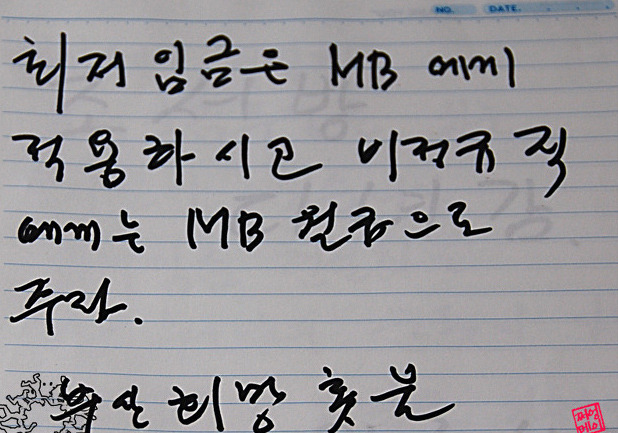 NO. DATE.
최저임금은 MB에게
적용하시고 비정규직
에게는 MB 월급으로
주라.
부산 희망 촛불